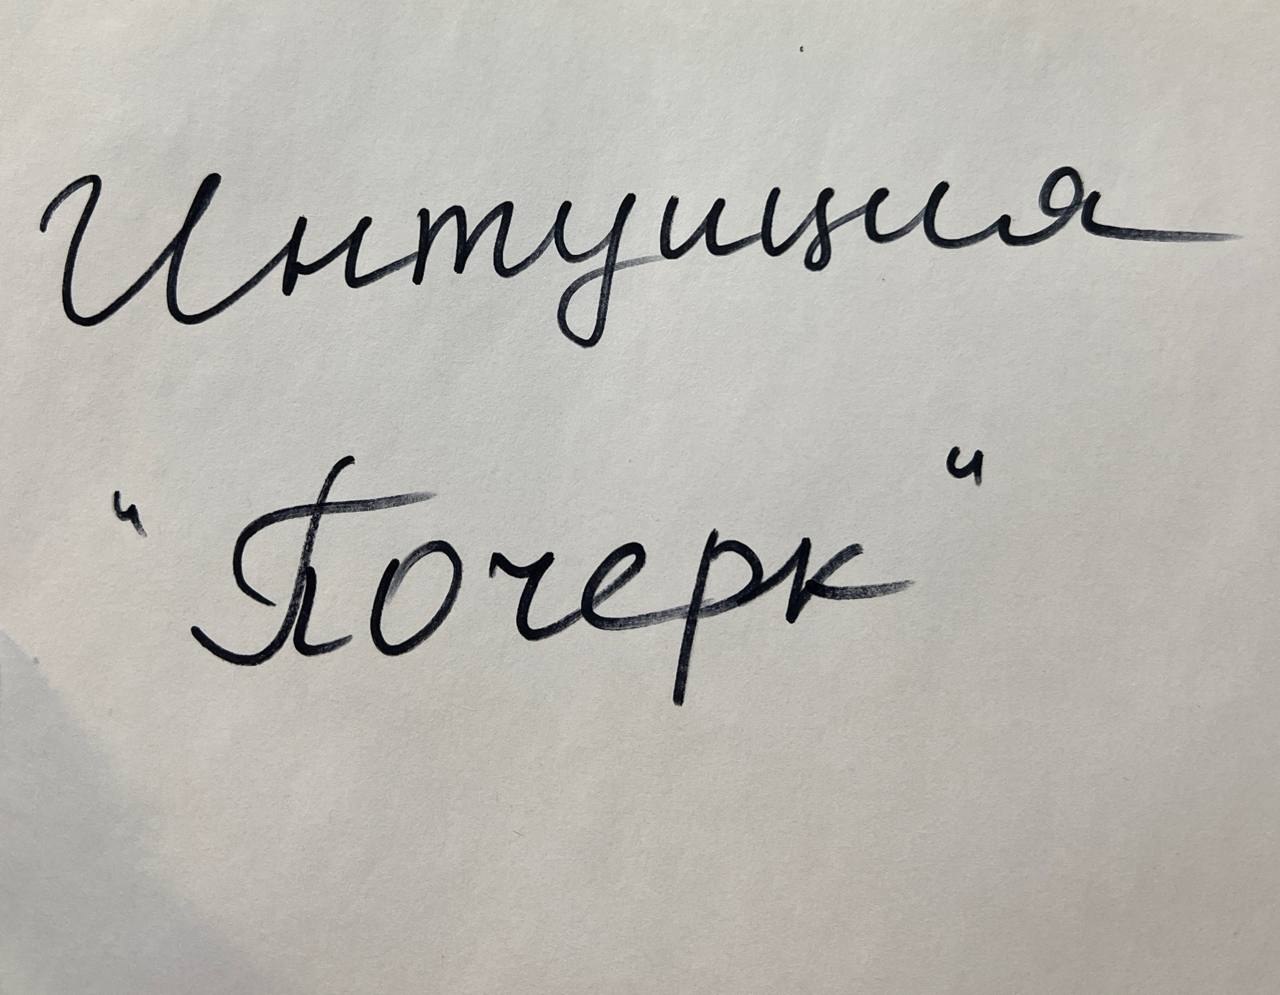 Интуиция
"Почерк"